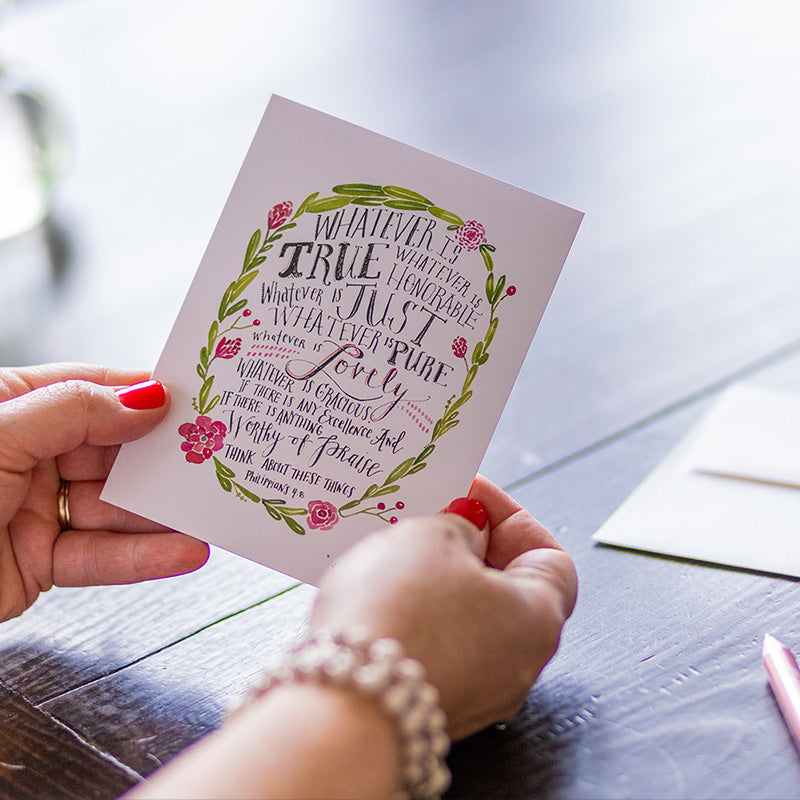 WHATEVER IS
TRUE WHATEVER IS HONORABLE,
Whatever is JUST
WHATEVER is PURE
whatever is Lovely
WHATEVER IS GRACIOUS,
IF THERE IS ANY Excellence And
IF THERE IS ANYTHING
Worthy of Praise
THINK ABOUT THESE THINGS
Philippians 4:8